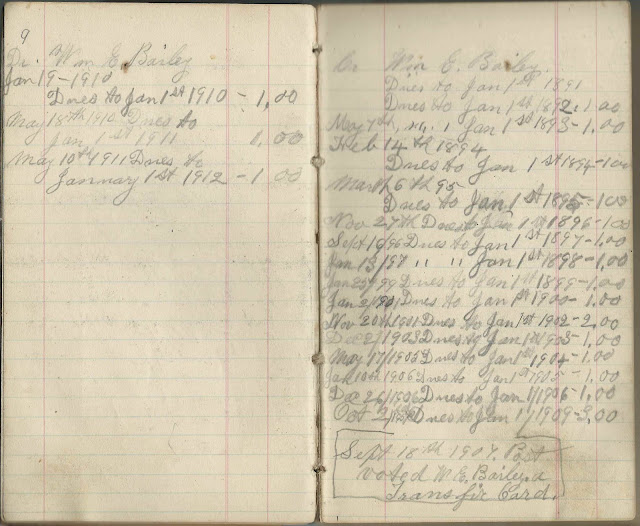 9
Dr. Wm E. Bailey
Jan 19-1910
Dues to Jan 1st 1910 - 1,00
May 18th 1910 Dues to
Jan 1st 1911 1,00
May 10th 1911 Dues to
January 1st 1912 - 1 00
Cr Wm E. Bailey.
Dues to Jan 1st 1891
Dues to Jan 1st, 1892. 1.00
May 7th, " " Jan 1st 1893-1.00
Feb 14th 1894
Dues to Jan 1st 1894-100
March 6th 95-
Dues to Jan 1st 1895-100
Nov 27th Dues to Jan 1st 1896-100
Sept 16/96 Dues to Jan 1st 1897-1.00
Jan 13/97 " " Jan 1st 1898-1.00
Jan 25/99 Dues to Jan 1st 1899-1.00
Jan 2/1901 Dues to Jan 1st 1900-1.00
Nov 20th 1901 Dues to Jan 1st 1902-2.00
Dec 2/1903 Dues to Jan 1st 1903-1.00
May 17/1905 Dues to Jan 1st 1904-1.00
Jan 10th 1906 Dues to Jan 1st 1905-1.00
Dec 26/1906 Dues to Jan 1/1906-1.00
Oct Dues to Jan 1/1909-3,00
Sept 18th 1907. Post
voted W.E. Bailey a
Transfir Card.